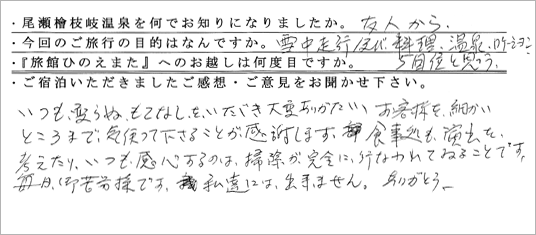 ・尾瀬檜枝岐温泉を何でお知りになりましたか。友人から、
・今回のご旅行の目的はなんですか。雪中走行及び料理、温泉、ロケーション
・『旅館ひのえまた』へのお越しは何度目ですか。5回位と思う。
・ご宿泊いただきましたご感想・ご意見をお聞かせ下さい。
いつも、変らぬ、もてなしを、いただき大変ありがたい、お客様を、細かい
ところまで、気使って下さることが感謝します、食事処も、演出を、
考えたり、いつも、感心するのは、掃除が完全に、行なわれてねることです。
毎日、御苦労様です、私達には、出来ません。ありがとう、